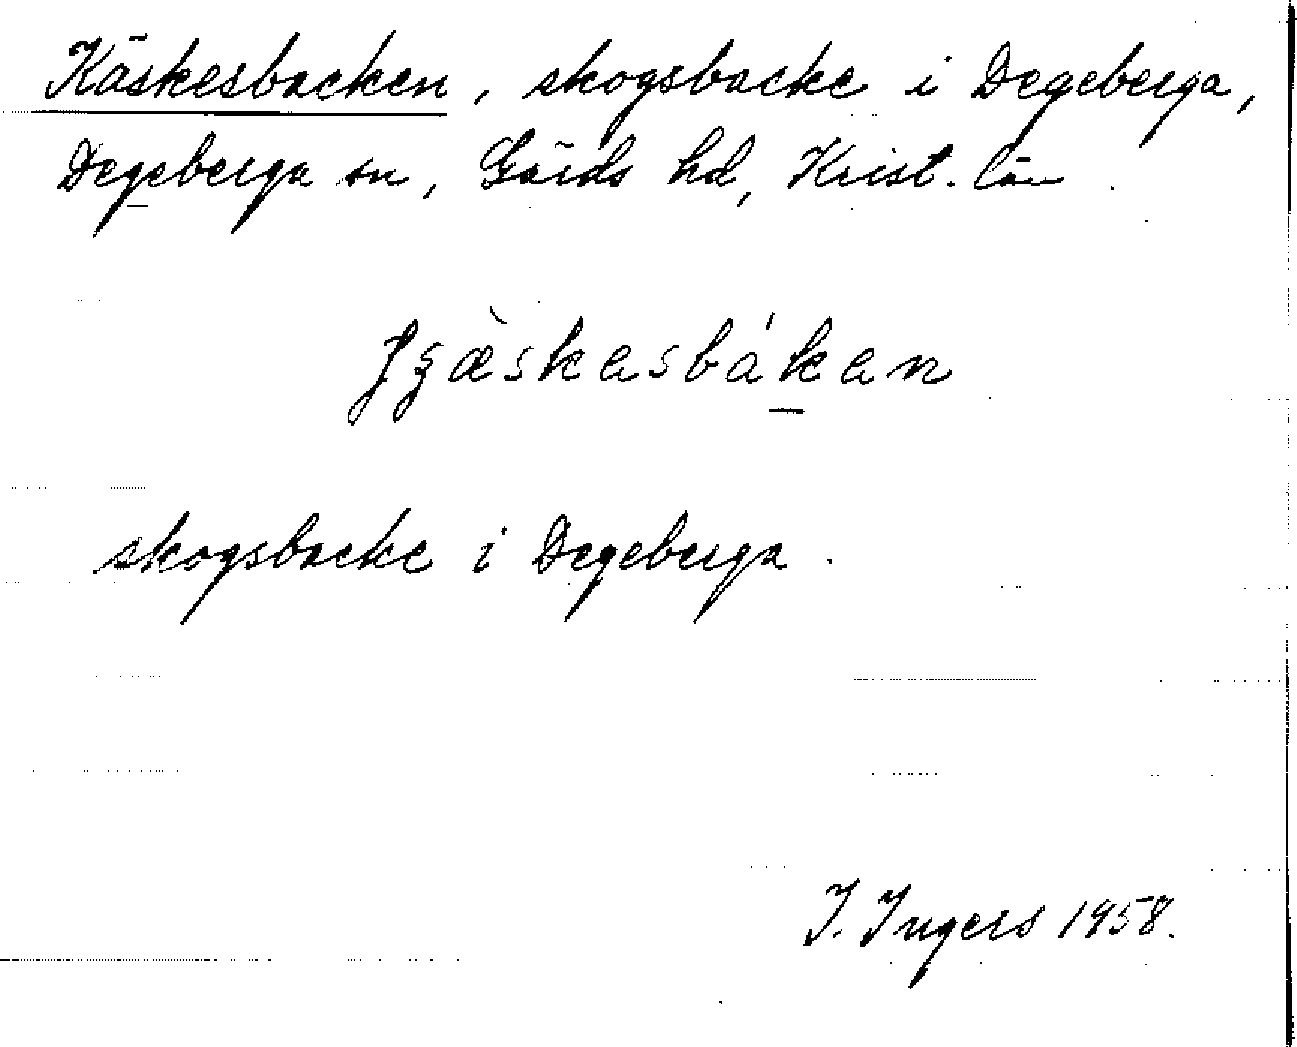 Käskesbacken, skogsbacke i Degeberga,
Degeberga sn, Gärds hd, Krist. län.
skogsbacke i Degeberga.
I. Ingers 1958.